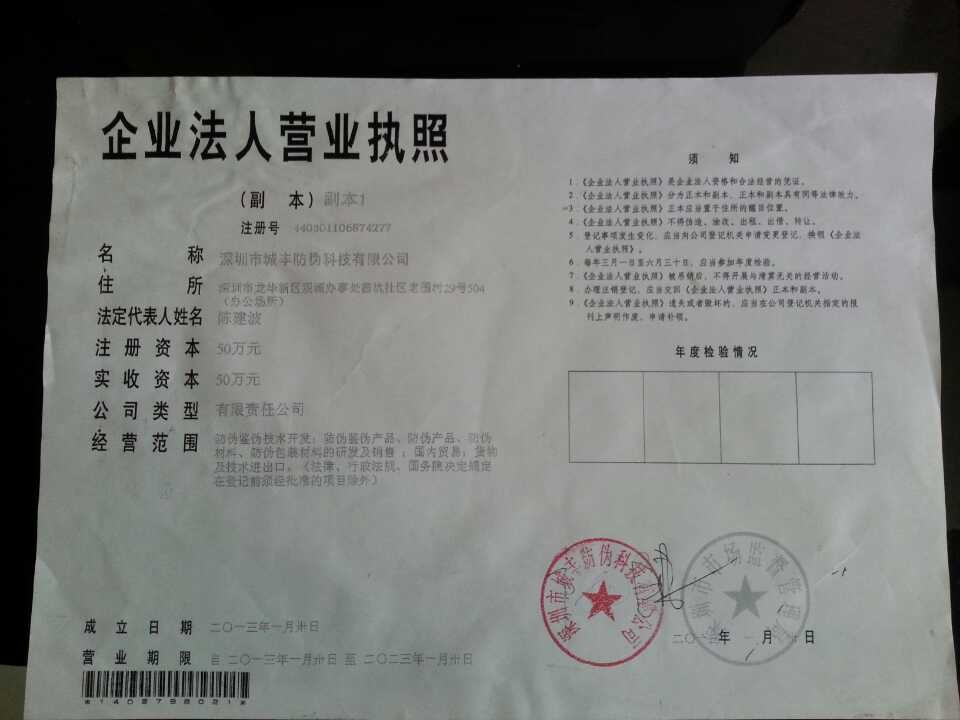 企业法人营业执照
（副 本）副本1
注册号 440301106874277
名 称 深圳市城丰防伪科技有限公司
住 所 深圳市龙华新区观澜办事处
老围村29号504
（办公场所）
法定代表人姓名 陈建波
注册资本 50万元
实收资本 50万元
公司类型 有限责任公司
经营范围 防伪鉴伪技术开发；防伪鉴伪产品、防伪产品、防伪
材料、防伪包装材料的研发及销售；国内贸易；货物
及技术进出口。（法律、行政法规、国务院决定规定
在登记前须经批准的项目除外）
成立日期 二〇一三年一月卅日
营业期限 自二〇一三年一月卅日至二〇二三年一月卅日
*1402798021*
须 知
1．《企业法人营业执照》是企业法人资格和合法经营的凭证。
2．《企业法人营业执照》分为正本和副本，正本和副本具有同等法律效力。
3．《企业法人营业执照》正本应当置于住所的醒目位置。
4．《企业法人营业执照》不得伪造、涂改、出租、出借、转让。
5 登记事项发生变化，应当向公司登记机关申请变更登记，换领《企业法
人营业执照》。
6．每年三月一日至六月三十日，应当参加年度检验。
7．《企业法人营业执照》被吊销后，不得开展与清算无关的经营活动。
8．办理注销登记，应当交回《企业法人营业执照》正本和副本。
9．《企业法人营业执照》遗失或者毁坏的，应当在公司登记机关指定的报
刊上声明作废，申请补领。
年度检验情况
深圳市城丰防伪科技有限公司
深圳市市场监督管理局
二〇一三年一月卅日